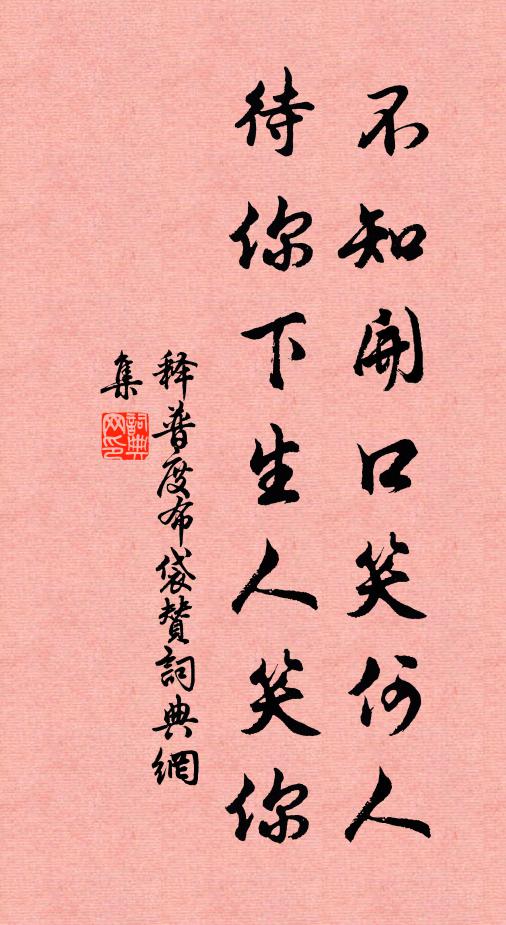 不知開口笑何人
待你下生人笑你
释普度布袋贊詞典網
集
詞典
网印